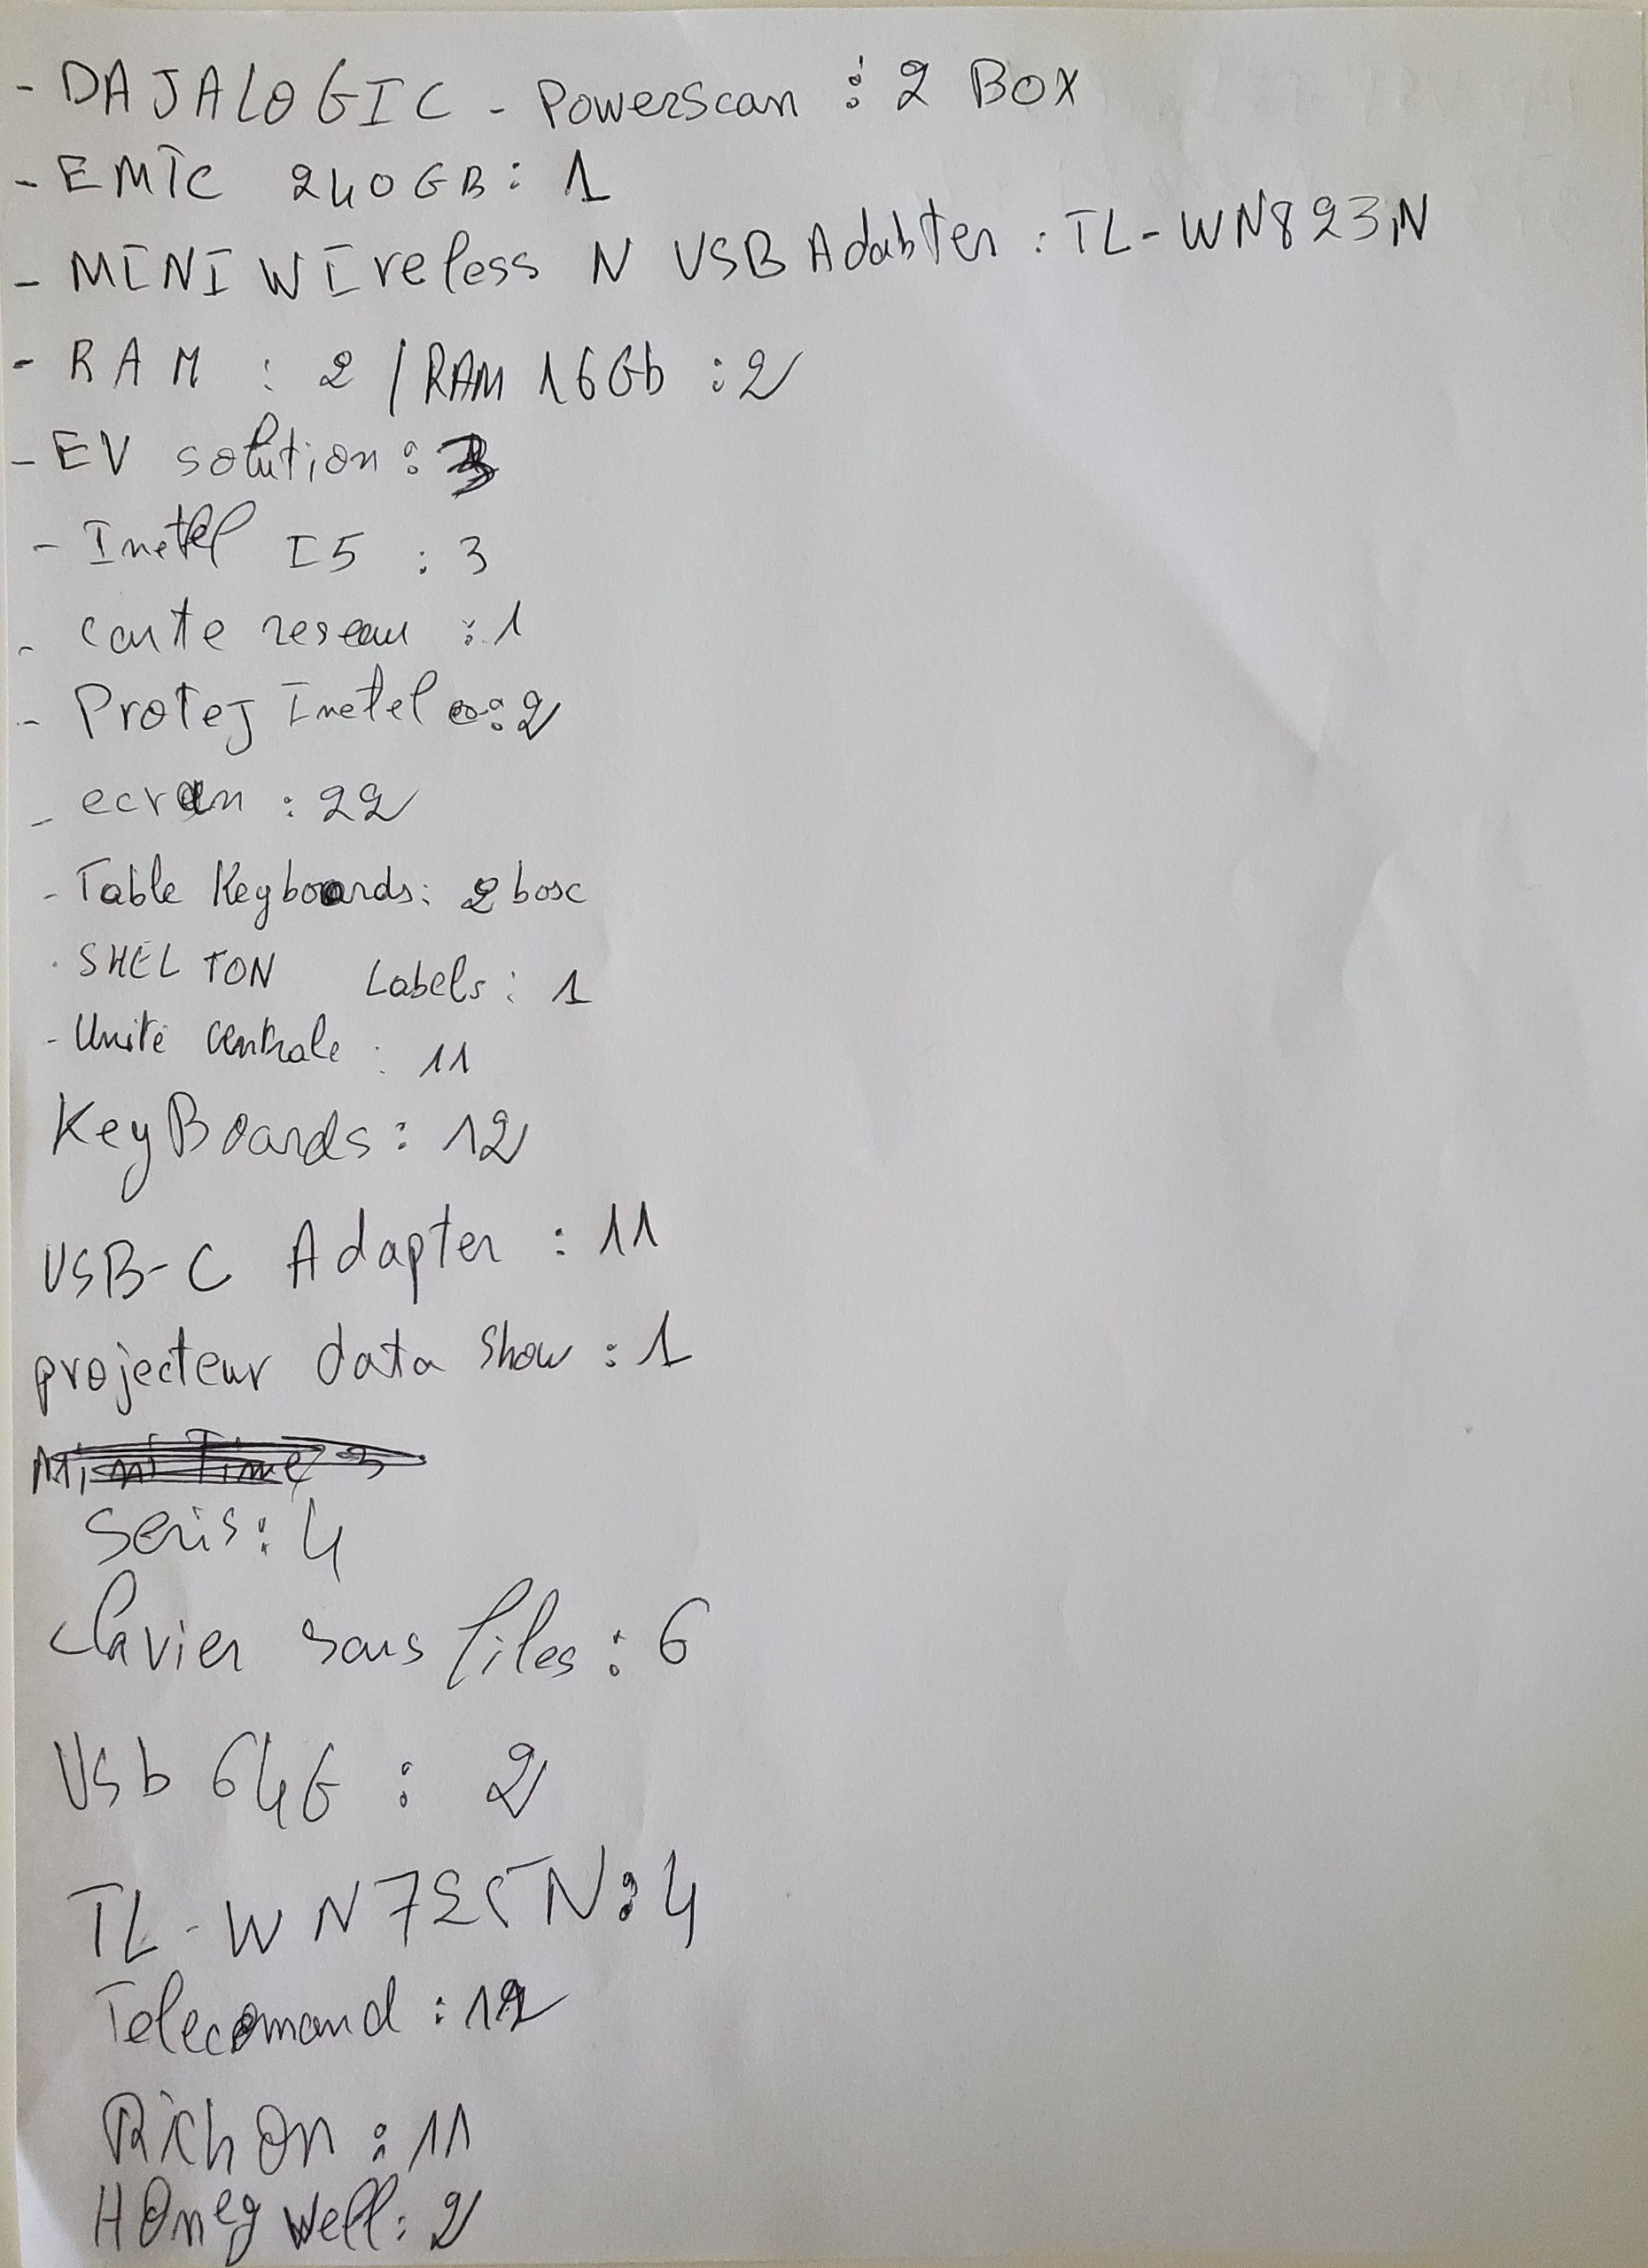 - DAJALOGIC - Powerscan : 2 BOX
- EMTC 240GB : 1
- MINI WIreless N USB Adabter : TL-WN823N
- RAM : 2 / RAM 16Gb : 2
- EV solution : 3
- Inetel I5 : 3
- carte reseau : 1
- Protej Inetel : 2
- ecran : 22
- Table Keyboards : 2 bosc
- SHELTON Labels : 1
- Unité centrale : 11
KeyBoards : 12
USB-C Adapter : 11
projecteur data show : 1
Seris : 4
clavier sans files : 6
Usb 64G : 2
TL-WN725N : 4
Telecomand : 12
Rich On : 11
HOneywell : 2